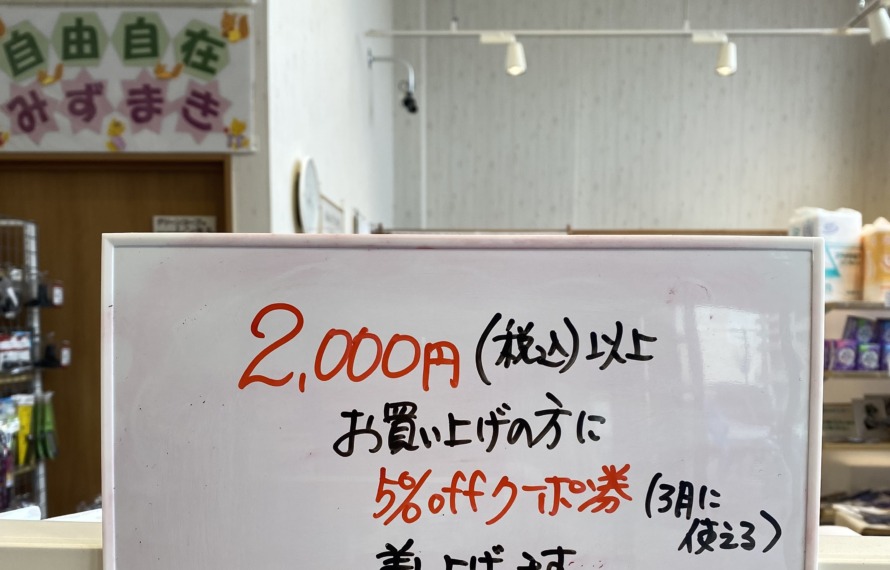 自由自在
みずまき
2,000円(税込)以上
お買い上げの方に
5%offクーポン券(3月に
使える)
差し上げます